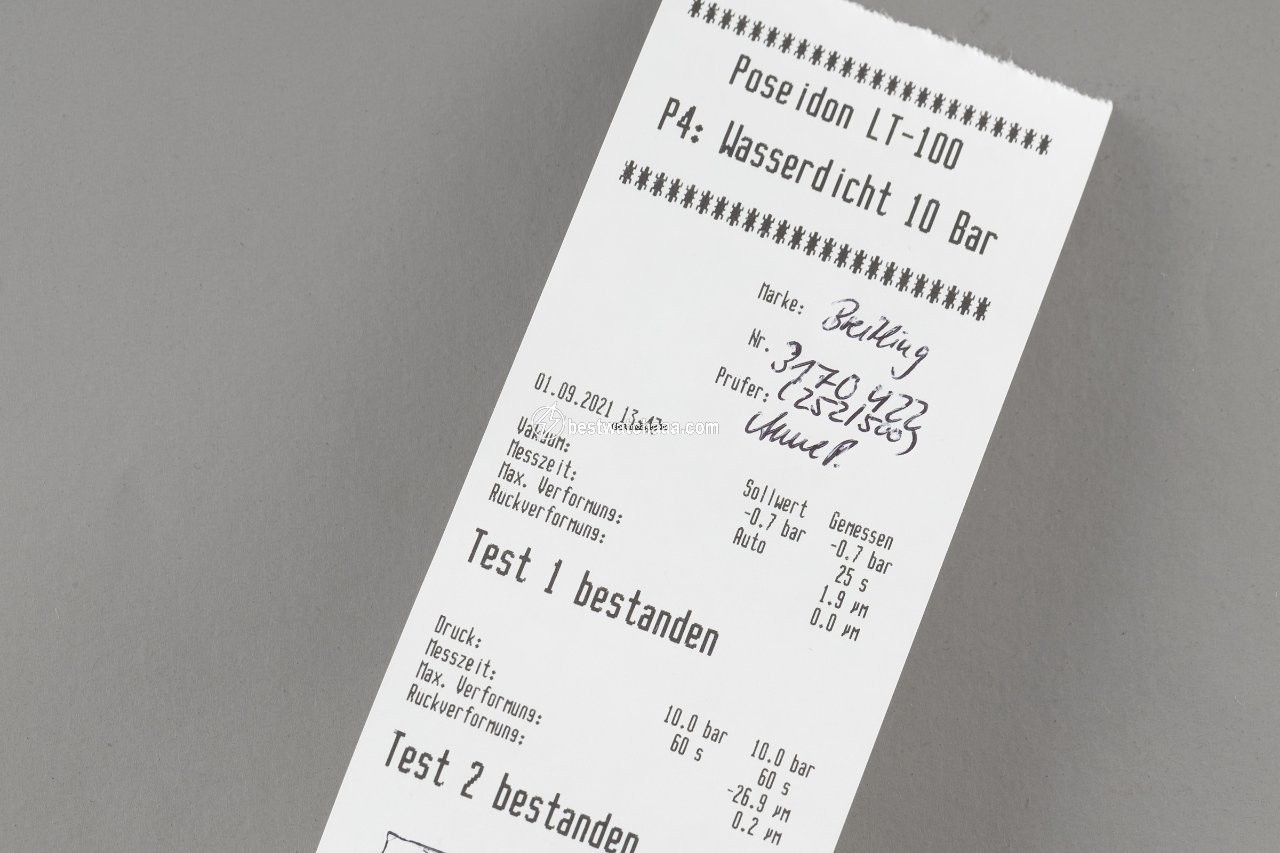 ************************
Poseidon LT-100
P4: Wasserdicht 10 Bar
************************
Marke: Breitling
Nr. 3170422
(252/500)
Prufer:
01.09.2021
bestwatch.com
Sollwert Gemessen
Vakuum: -0.7 bar -0.7 bar
Messzeit: Auto 25 s
Max. Verformung: 1.9 µm
Ruckverformung: 0.0 µm
Test 1 bestanden
Druck: 10.0 bar 10.0 bar
Messzeit: 60 s 60 s
Max. Verformung: -26.9 µm
Ruckverformung: 0.2 µm
Test 2 bestanden